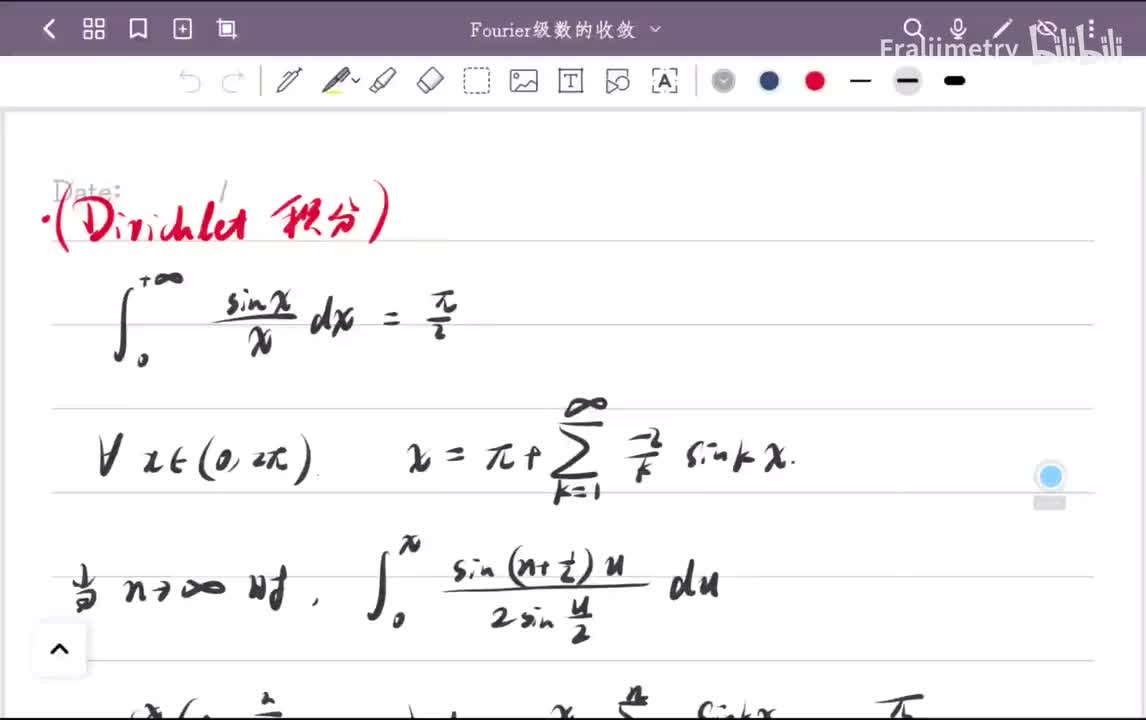 Fourier级数的收敛
Eraliimetry bilibili
Date: /
·(Dirichlet 积分)
∫₀^{+∞} sin x / x dx = π/2
∀ x∈(0, 2π) x = π + ∑_{k=1}^{∞} -2/k sin kx.
当 n→∞ 时, ∫₀^x sin(n+1/2)u / 2 sin u/2 du